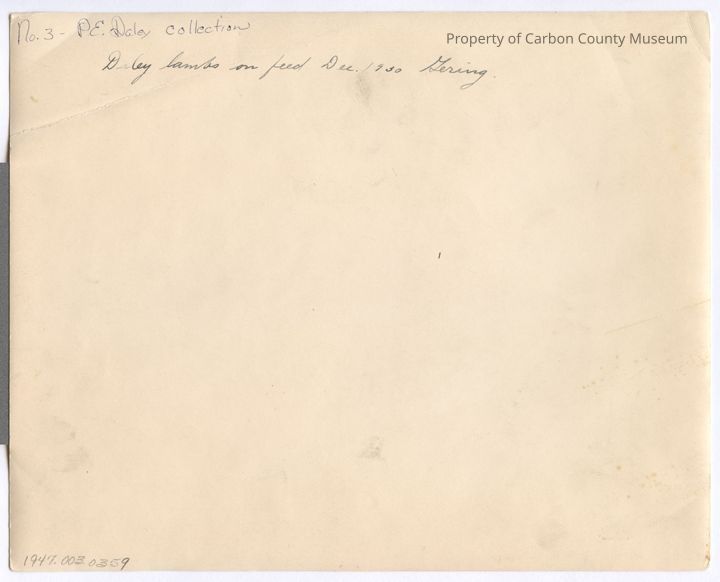 No. 3 - P.E. Daley collection
Property of Carbon County Museum
Daley lambs on feed Dec. 1930 Gering.
1947.003.0359